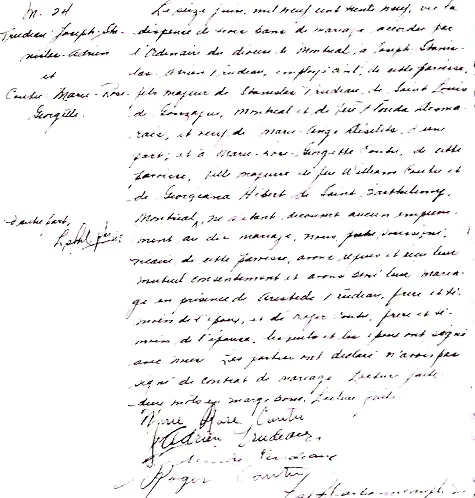 M. 24
Trudeau Joseph-Sta-
nislas-Adrien
et
Comtu Marie-Rose
Georgette
Le seize juin, mil neuf cent trente neuf, vu la
dispense de trois bans de mariage accordée par
l'Ordinaire du diocèse de Montréal, à Joseph-Stanis-
las Adrien Trudeau, employé civil, de cette paroisse,
fils majeur de Stanislas Trudeau, de Saint Louis
de Gonzague, Montréal et de feu Desma-
rais, et veuf de Marie-Ange Désilets, d'une
part; et à Marie-Rose-Georgette Comtu, de cette
paroisse, fille majeure de feu William Comtu et
de Georgeana Hébert de Saint Barthélemy,
d'autre part,
Montréal, ne s'étant découvert aucun empêche-
ment au dit mariage, nous, soussigné,
vicaire de cette paroisse, avons requis et reçu leur
mutuel consentement et avons béni leur maria-
ge en présence de Aristide Trudeau, frère et té-
moin de l'époux, et de Roger Comtu, frère et té-
moin de l'épouse, lesquels et les époux ont signé
avec nous. Les parties ont déclaré n'avoir pas
signé de contrat de mariage. Lecture faite
deux mots en marge bons. Lecture faite
Marie Rose Comtu
Adrien Trudeau
Trudeau
Roger Comtu